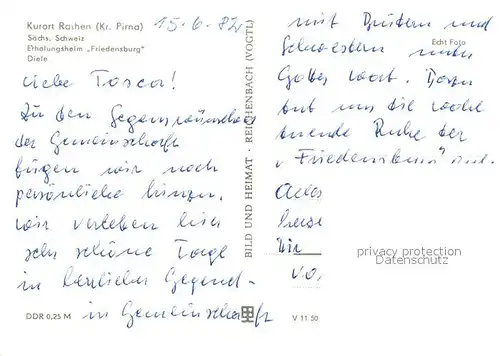 Kurort Rathen (Kr. Pirna) 15.6.82
Sächs. Schweiz
Erholungsheim „Friedensburg"
Diele
Liebe Tosca!
Zu den Segenswünschen
der Gemeinschaft
fügen wir noch
persönliche hinzu.
Wir verleben hier
sehr schöne Tage
in herrlicher Gegend -
in Gemeinschaft
DDR 0,25 M
BILD UND HEIMAT · REICHENBACH (VOGTL)
V 11 50
Echt Foto
mit Brüdern und
Schwestern unter
Gottes Wort. Dazu
tut uns die wohl
tuende Ruhe der
„Friedensburg" gut.
Alles
Dir
privacy protection
Datenschutz